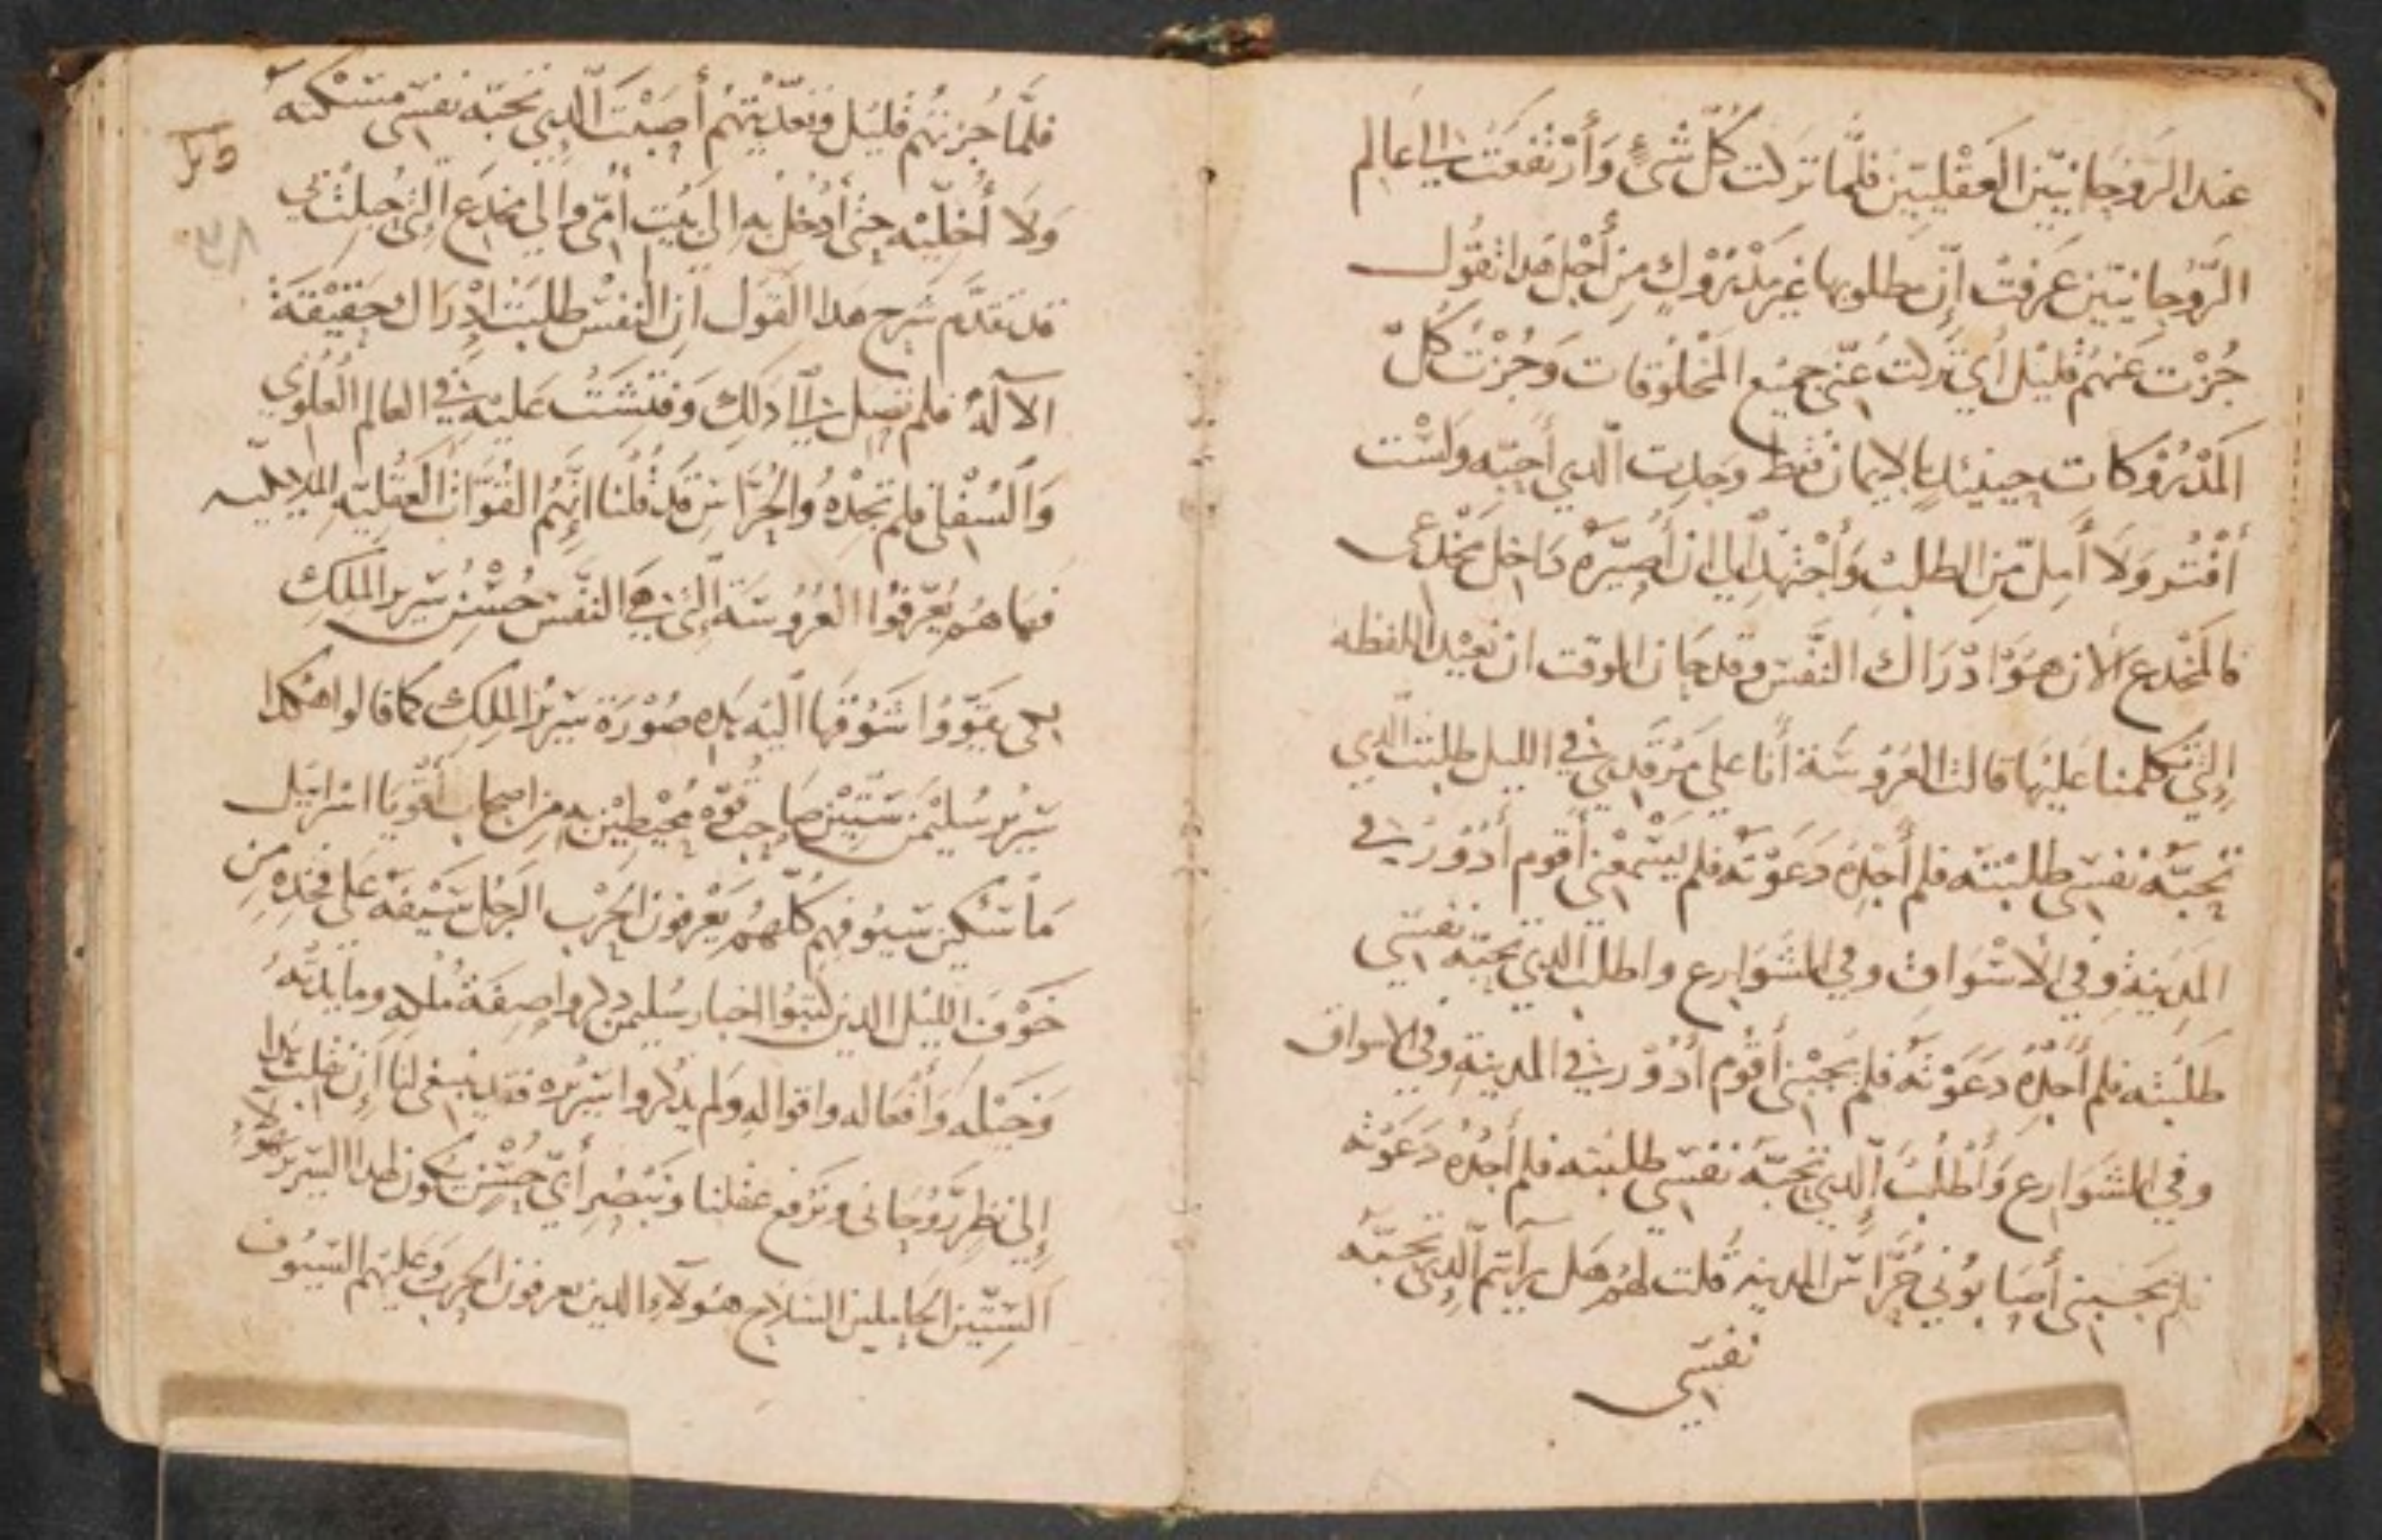 عند الروحانيين العقليين فلما تركت كل شئ وأرتفعت الي عالم
الروحانيين عرفت إن مطلوبها غير مدروك من أجل هدا تقول
جزت عنهم قليل أي تركت عني جميع المخلوقات وجزت كل
المدروكات حينيد بالايمان فقط وجدت الدي أحبه ولست
أفتر ولا أمل من الطلب وأجتهد الي ان أصيره داخل مخدعي
فالمخدع الان هو ادراك النفس وقد حان الوقت ان نعيد اللفظه
التي تكلمنا عليها قالت العروسة أنا علي مرقدي في الليل طلبت الدي
تحبه نفسي طلبته فلم أجده دعوته فلم يسمعني أقوم أدور في
المدينة وفي الاسواق وفي الشوارع واطلب الدي تحبه نفسي
طلبته فلم أجده دعوته فلم يجبني أقوم أدور في المدينة وفي الاسواق
وفي الشوارع وأطلب الدي تحبه نفسي طلبته فلم أجده دعوته
فلم يجبني أصابوني حراس المدينه قلت لهم هل رأيتم الدي تحبه
نفسي
فلما جزتهم قليل وتعديتهم أصبت الدي تحبه نفسي مسكته
ولا أخليه حتي أدخل به الي بيت أمي والي مخدع التي حبلت بي
قد تقدم شرح هدا القول ان النفس طلبت ادراك حقيقة
الاله فلم تصل الي دلك وفتشت عليه في العالم العلوي
والسفلي فلم تجده والحراس قد قلنا انهم القوات العقليه الملايكيه
فما هم يعرفوا العروسة التي هي النفس حسن سرير الملك
لكي يقووا شوقها اليه بده صورة سرير الملك كما قالوا هكدا
سرير سليمن ستين صاحب قوه محيطين به من اصحاب أقويا اسرايل
ماسكين سيوفهم كلهم يعرفون الحرب الرجل سيفه على فخده من
خوف الليل الدين كتبوا اخبار سليمن دكروا صفة ملكه ومايدته
وخيله وأفعاله واقواله ولم يدكروا سريره فقد ينبغي لنا إن نقلب هدا
إلي نظر روحاني ونرفع عقلنا ونبصر أي حسن يكون لهدا السرير هولاء
الستين الحاملين السلاح هولاء الدين يعرفون الحرب وعليهم السيوف
٣٨